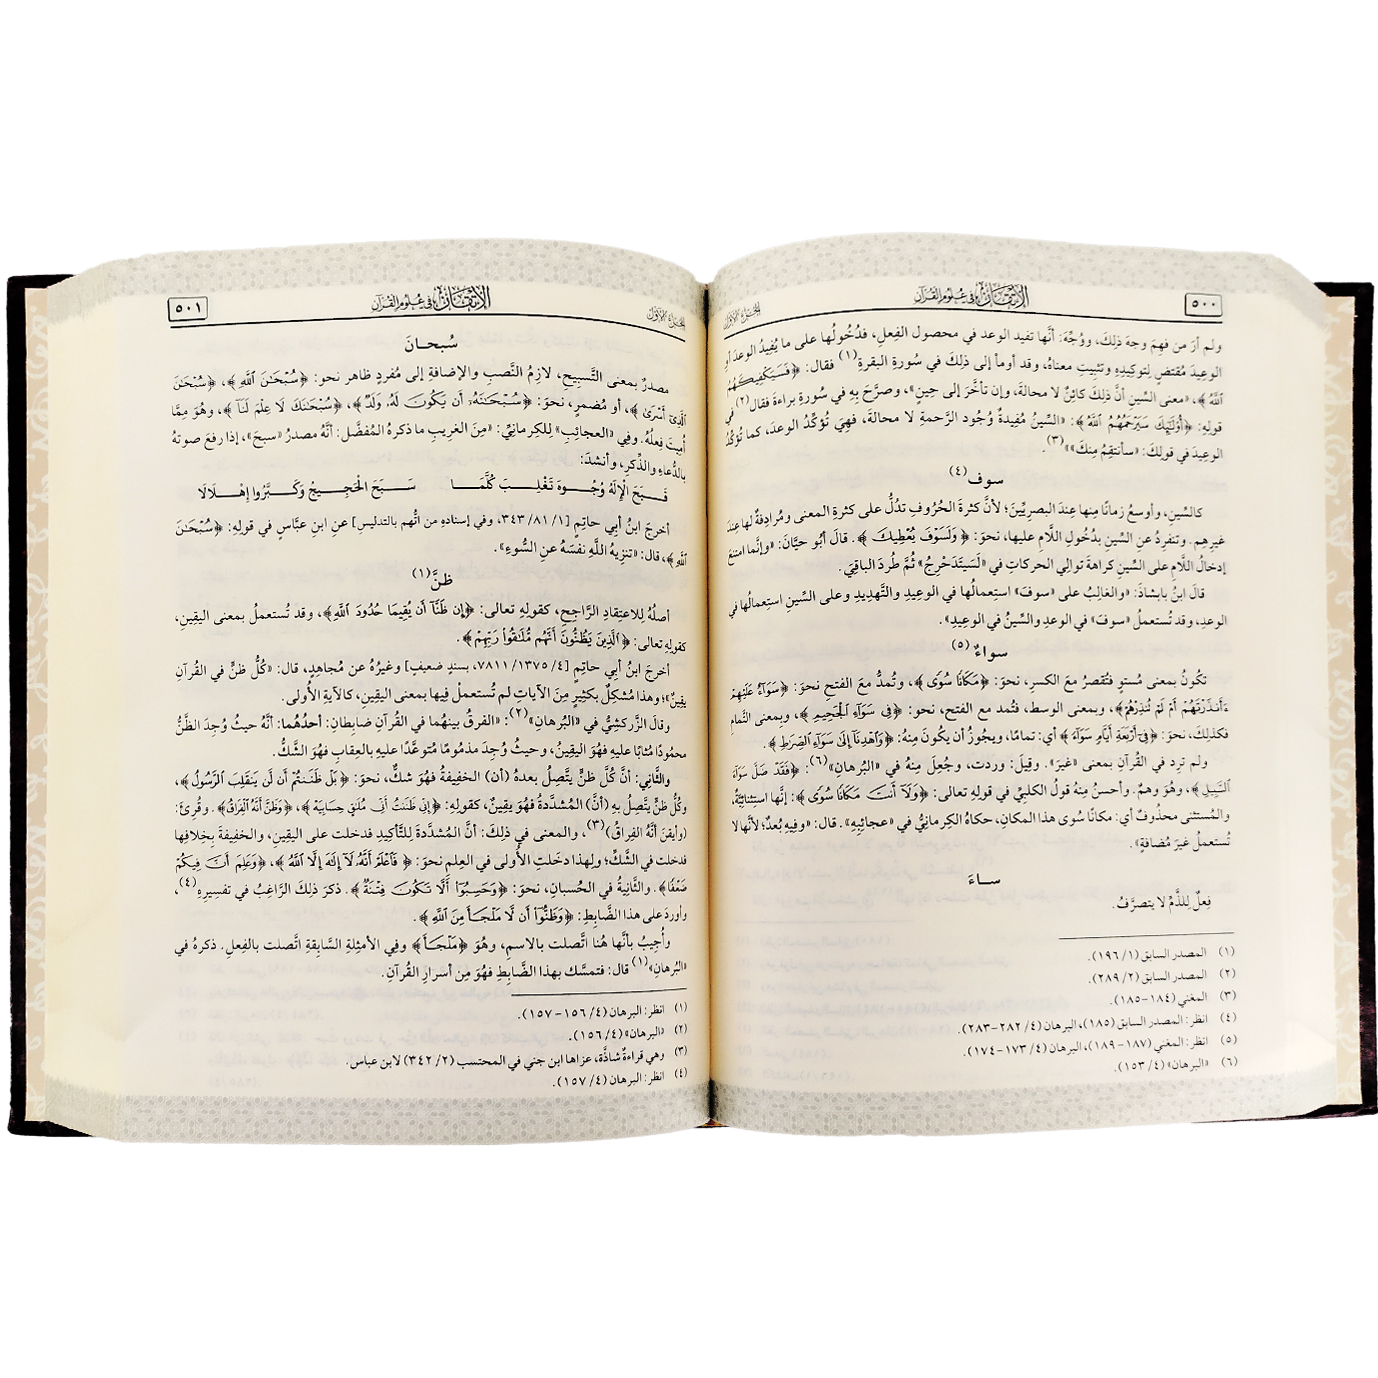 ٥٠٠
الإتقان في علوم القرآن
الجزء الأول
ولم أرَ من فهِمَ وجهَ ذلِكَ، ووُجِّهَ: أنَّها تفيد الوعد في محصول الفِعلِ، فدُخُولُها على ما يُفِيدُ الوعدَ أو
الوعِيدَ مُقتضٍ لِتوكِيدِهِ وتثبِيتِ معناهُ، وقد أومأ إلى ذلِكَ في سُورةِ البقرةِ(١) فقال: ﴿فَسَيَكْفِيكَهُمُ
ٱللَّهُ﴾، «معنى السِّين أنَّ ذلِكَ كائِنٌ لا محالة، وإن تأخَّرَ إلى حِينٍ»، وصرَّحَ بِهِ في سُورةِ براءةَ فقال(٢) في
قولِهِ: ﴿أُو۟لَٰٓئِكَ سَيَرْحَمُهُمُ ٱللَّهُ﴾: «السِّينُ مُفِيدةٌ وُجُود الرَّحمةِ لا محالةَ، فهِيَ تُؤكِّدُ الوعدَ، كما تُؤكِّدُ
الوعِيدَ في قولِكَ: «سأنتقِمُ مِنكَ»»(٣).
سوف(٤)
كالسِّينِ، وأوسعُ زمانًا مِنها عِندَ البصرِيِّينَ؛ لأنَّ كثرةَ الحُرُوفِ تدُلُّ على كثرةِ المعنى ومُرادِفةٌ لها عِندَ
غيرِهِم. وتنفرِدُ عنِ السِّينِ بدُخُولِ اللَّامِ عليها، نحوَ: ﴿وَلَسَوْفَ يُعْطِيكَ﴾. قالَ أبُو حيَّان: «وإنَّما امتنعَ
إدخالُ اللَّامِ على السِّينِ كراهةَ توالِي الحركاتِ في «لَسَيتَدَحْرِجُ» ثُمَّ طُردَ الباقِيَ.
قالَ ابنُ بابشاذَ: «والغالِبُ على «سوفَ» استِعمالُها في الوعِيدِ والتَّهدِيدِ وعلى السِّينِ استِعمالُها في
الوعدِ، وقد تُستعملُ «سوفَ» في الوعدِ والسِّينُ في الوعِيدِ».
سواءٌ(٥)
تكُونُ بمعنى مُستوٍ فتُقصرُ معَ الكسرِ، نحوَ: ﴿مَكَانًا سُوًى﴾، وتُمدُّ معَ الفتحِ نحوَ: ﴿سَوَآءٌ عَلَيْهِمْ
ءَأَنذَرْتَهُمْ أَمْ لَمْ تُنذِرْهُمْ﴾، وبمعنى الوسط، فتُمد مع الفتح، نحو: ﴿فِى سَوَآءِ ٱلْجَحِيمِ﴾، وبِمعنى التَّمامِ
فكذلِكَ، نحوَ: ﴿فِىٓ أَرْبَعَةِ أَيَّامٍ سَوَآءً﴾ أي: تمامًا، ويجوزُ أن يكُونَ مِنهُ: ﴿وَٱهْدِنَآ إِلَىٰ سَوَآءِ ٱلصِّرَٰطِ﴾.
ولم ترِد في القُرآنِ بمعنى «غير». وقِيلَ: وردت، وجُعِلَ مِنهُ في «البُرهانِ»(٦): ﴿فَقَدْ ضَلَّ سَوَآءَ
ٱلسَّبِيلِ﴾، وهُوَ وهمٌ. وأحسنُ مِنهُ قولُ الكلبِيِّ في قولِهِ تعالى: ﴿وَلَآ أَنتَ مَكَانًا سُوًى﴾: إنَّها استِثنائِيَّةٌ،
والمُستثنى محذُوفٌ أي: مكانًا سُوى هذا المكانِ، حكاهُ الكِرمانِيُّ في «عجائِبِهِ». قال: «وفِيهِ بُعدٌ؛ لأنَّها لا
تُستعملُ غيرَ مُضافةٍ».
ســاءَ
فِعلٌ لِلذَّمِّ لا يتصرَّفُ.
(١) المصدر السابق (١/ ١٩٦).
(٢) المصدر السابق (٢/ ٢٨٩).
(٣) المغني (١٨٤-١٨٥).
(٤) انظر: المصدر السابق (١٨٥)، البرهان (٤/ ٢٨٢-٢٨٣).
(٥) انظر: المغني (١٨٧-١٨٩)، البرهان (٤/ ١٧٣-١٧٤).
(٦) «البرهان» (٤/ ١٥٣).
الجزء الأول
الإتقان في علوم القرآن
٥٠١
سُبحــانَ
مصدرٌ بمعنى التَّسبِيحِ، لازِمُ النَّصبِ والإضافةِ إلى مُفردٍ ظاهر نحو: ﴿سُبْحَٰنَ ٱللَّهِ﴾، ﴿سُبْحَٰنَ
ٱلَّذِىٓ أَسْرَىٰ﴾، أو مُضمرٍ، نحوَ: ﴿سُبْحَٰنَهُۥٓ أَن يَكُونَ لَهُۥ وَلَدٌ﴾، ﴿سُبْحَٰنَكَ لَا عِلْمَ لَنَآ﴾، وهُوَ مِمَّا
أُمِيتَ فِعلُهُ. وفِي «العجائِبِ» لِلكِرمانِيِّ: «مِنَ الغرِيبِ ما ذكرهُ المُفضَّل: أنَّهُ مصدرُ «سبحَ»، إذا رفعَ صوتهُ
بِالدُّعاءِ والذِّكرِ، وأنشدَ:
قَــبَحَ الْإِلَهُ وُجُــوهَ تَغْلِــبَ كُلَّمَــا سَــبَحَ الْحَجِــيجُ وَكَبَّرُوا إِهْــلَالَا
أخرجَ ابنُ أبِي حاتِمٍ [١/ ٨١/ ٣٤٣، وفي إسنادِهِ من اتُّهِم بالتدليسِ] عنِ ابنِ عبَّاسٍ في قولِهِ: ﴿سُبْحَٰنَ
ٱللَّهِ﴾، قال: «تنزِيهُ اللَّهِ نفسَهُ عنِ السُّوءِ».
ظنَّ(١)
أصلُهُ لِلاعتِقادِ الرَّاجِحِ، كقولِهِ تعالى: ﴿إِن ظَنَّآ أَن يُقِيمَا حُدُودَ ٱللَّهِ﴾، وقد تُستعملُ بمعنى اليقِينِ،
كقولِهِ تعالى: ﴿ٱلَّذِينَ يَظُنُّونَ أَنَّهُم مُّلَٰقُوا۟ رَبِّهِمْ﴾.
أخرجَ ابنُ أبِي حاتِمٍ [٤/ ١٣٧٥/ ٧٨١١، بسندٍ ضعيفٍ] وغيرُهُ عن مُجاهِدٍ، قال: «كُلُّ ظنٍّ في القُرآنِ
يقِينٌ»؛ وهذا مُشكِلٌ بكثِيرٍ مِنَ الآياتِ لم تُستعملُ فِيها بمعنى اليقِينِ، كالآيةِ الأُولى.
وقالَ الزَّركشِيُّ في «البُرهانِ»(٢): «الفرقُ بينهُما في القُرآنِ ضابِطانِ: أحدُهُما: أنَّهُ حيثُ وُجِدَ الظَّنُّ
محمُودًا مُثابًا عليهِ فهُوَ اليقِينُ، وحيثُ وُجِدَ مذمُومًا مُتوعَّدًا عليهِ بالعِقابِ فهُوَ الشَّكُّ.
والثَّانِي: أنَّ كُلَّ ظنٍّ يتَّصِلُ بعدهُ (أن) الخفِيفةُ فهُوَ شكٌّ، نحوَ: ﴿بَلْ ظَنَنتُمْ أَن لَّن يَنقَلِبَ ٱلرَّسُولُ﴾،
وكُلُّ ظنٍّ يتَّصِلُ بِهِ (أنَّ) المُشدَّدةُ فهُوَ يقِينٌ، كقولِهِ: ﴿إِنِّى ظَنَنتُ أَنِّى مُلَٰقٍ حِسَابِيَهْ﴾، ﴿وَظَنَّ أَنَّهُ ٱلْفِرَاقُ﴾. وقُرِئَ:
(وأيقنَ أنَّهُ الفِراقُ)(٣)، والمعنى في ذلِكَ: أنَّ المُشدَّدةَ لِلتَّأكِيدِ فدخلت على اليقِينِ، والخفِيفةَ بِخلافِها
فدخلت في الشَّكِّ؛ ولِهذا دخلتِ الأُولى في العِلمِ نحوَ: ﴿فَٱعْلَمْ أَنَّهُۥ لَآ إِلَٰهَ إِلَّا ٱللَّهُ﴾، ﴿وَعَلِمَ أَنَّ فِيكُمْ
ضَعْفًا﴾. والثَّانِيةُ في الحُسبانِ، نحوَ: ﴿وَحَسِبُوٓا۟ أَلَّا تَكُونَ فِتْنَةٌ﴾. ذكرَ ذلِكَ الرَّاغِبُ في تفسِيرِهِ(٤)،
وأوردَ على هذا الضَّابِطِ: ﴿وَظَنُّوٓا۟ أَن لَّا مَلْجَأَ مِنَ ٱللَّهِ﴾.
وأُجِيبُ بأنَّها هُنا اتَّصلت بالاسمِ، وهُوَ ﴿مَلْجَأَ﴾ وفِي الأمثِلةِ السَّابِقةِ اتَّصلت بالفِعلِ. ذكرهُ في
«البُرهانِ»(١) قال: فتمسَّك بهذا الضَّابِطِ فهُوَ مِن أسرارِ القُرآنِ.
(١) انظر: البرهان (٤/ ١٥٦-١٥٧).
(٢) «البرهان» (٤/ ١٥٦).
(٣) وهي قراءةٌ شاذَّة، عزاها ابن جني في المحتسب (٢/ ٣٤٢) لابن عباس.
(٤) انظر: البرهان (٤/ ١٥٧).